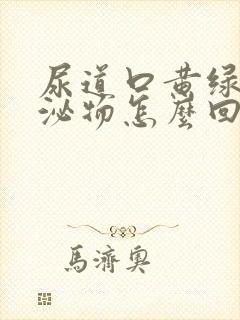 尿道口黄绿
泌物怎麼回
馬濟奧